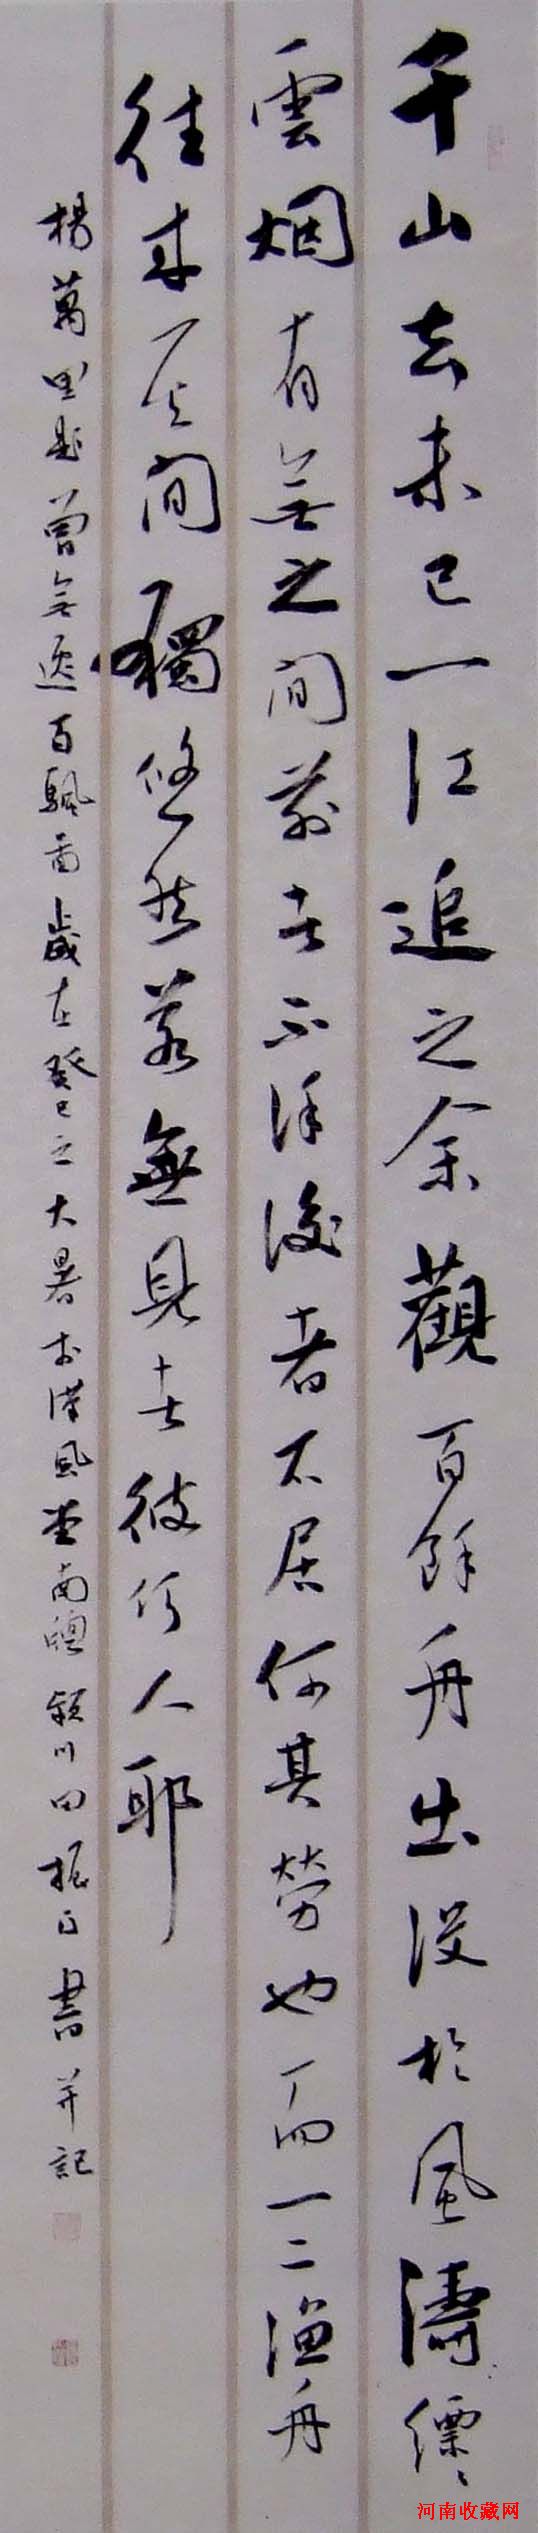 千山去未已一江追之余觀百餘舟出没於風濤縹〻
雲烟有無之間前者不徯後者不居何其勞也而一二漁舟
往来其間獨悠然若無見者彼何人耶
楊萬里題曾無逸百颿圖歲在癸巳之大暑於漢風堂南牕潁川田振書并記
河南收藏网